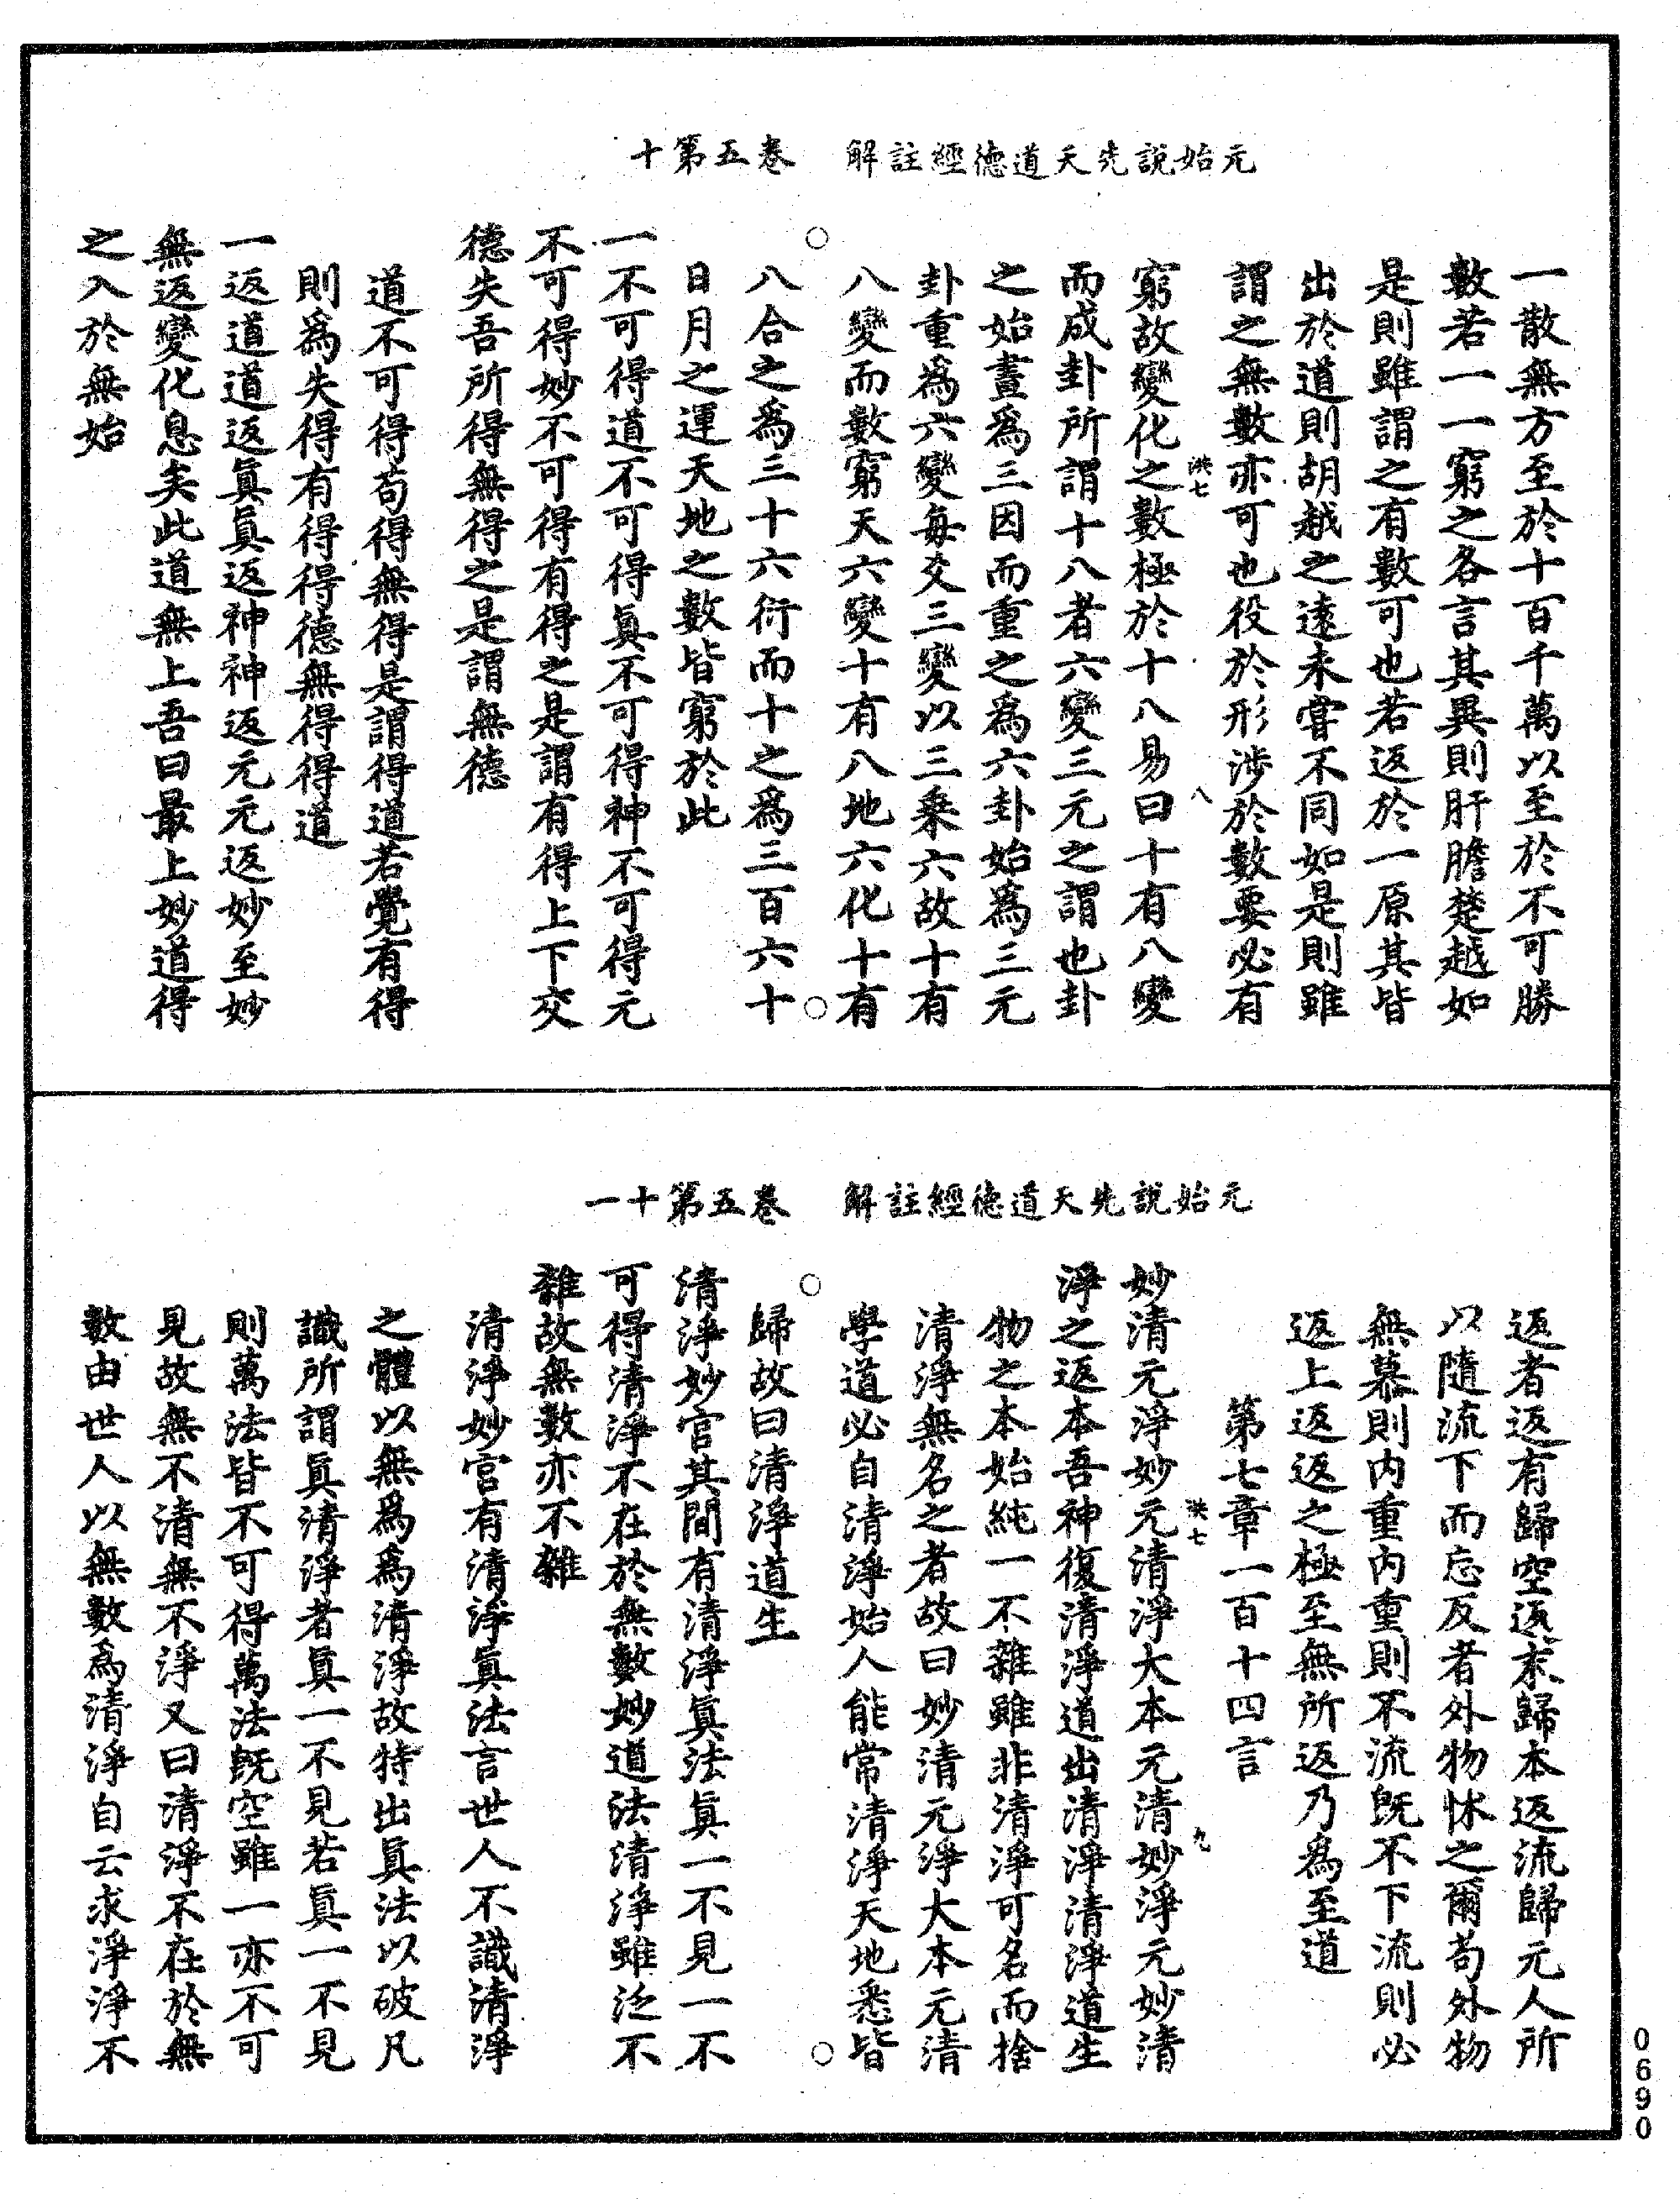 元始說先天道德經註解　卷五第十
一散無方至於十百千萬以至於不可勝
數若一一窮之各言其異則肝膽楚越如
是則雖謂之有數可也若返於一原其皆
出於道則胡越之遠未嘗不同如是則雖
謂之無數亦可也役於形涉於數要必有
洪七　八
窮故變化之數極於十八易曰十有八變
而成卦所謂十八者六變三元之謂也卦
之始畫爲三因而重之爲六卦始爲三元
卦重爲六變每爻三變以三乘六故十有
八變而數窮天六變十有八地六化十有
八合之爲三十六衍而十之爲三百六十
日月之運天地之數皆窮於此
一不可得道不可得眞不可得神不可得元
不可得妙不可得有得之是謂有得上下交
德失吾所得無得之是謂無德
道不可得苟得無得是謂得道若覺有得
則爲失得有得得德無得得道
一返道道返眞眞返神神返元元返妙至妙
無返變化息矣此道無上吾曰最上妙道得
之入於無始
元始說先天道德經註解　卷五第十一
返者返有歸空返末歸本返流歸元人所
以隨流下而忘反者外物怵之爾苟外物
無慕則內重內重則不流旣不下流則必
返上返返之極至無所返乃爲至道
第七章一百十四言
洪七　九
妙清元淨妙元清淨大本元清妙淨元妙清
淨之返本吾神復清淨道出清淨清淨道生
物之本始純一不雜雖非清淨可名而捨
清淨無名之者故曰妙清元淨大本元清
學道必自清淨始人能常清淨天地悉皆
歸故曰清淨道生
清淨妙官其間有清淨眞法眞一不見一不
可得清淨不在於無數妙道法清淨雖泛不
雜故無數亦不雜
清淨妙官有清淨眞法言世人不識清淨
之體以無爲爲清淨故特出眞法以破凡
識所謂眞清淨者眞一不見若眞一不見
則萬法皆不可得萬法旣空雖一亦不可
見故無不清無不淨又曰清淨不在於無
數由世人以無數爲清淨自云求淨淨不
0690